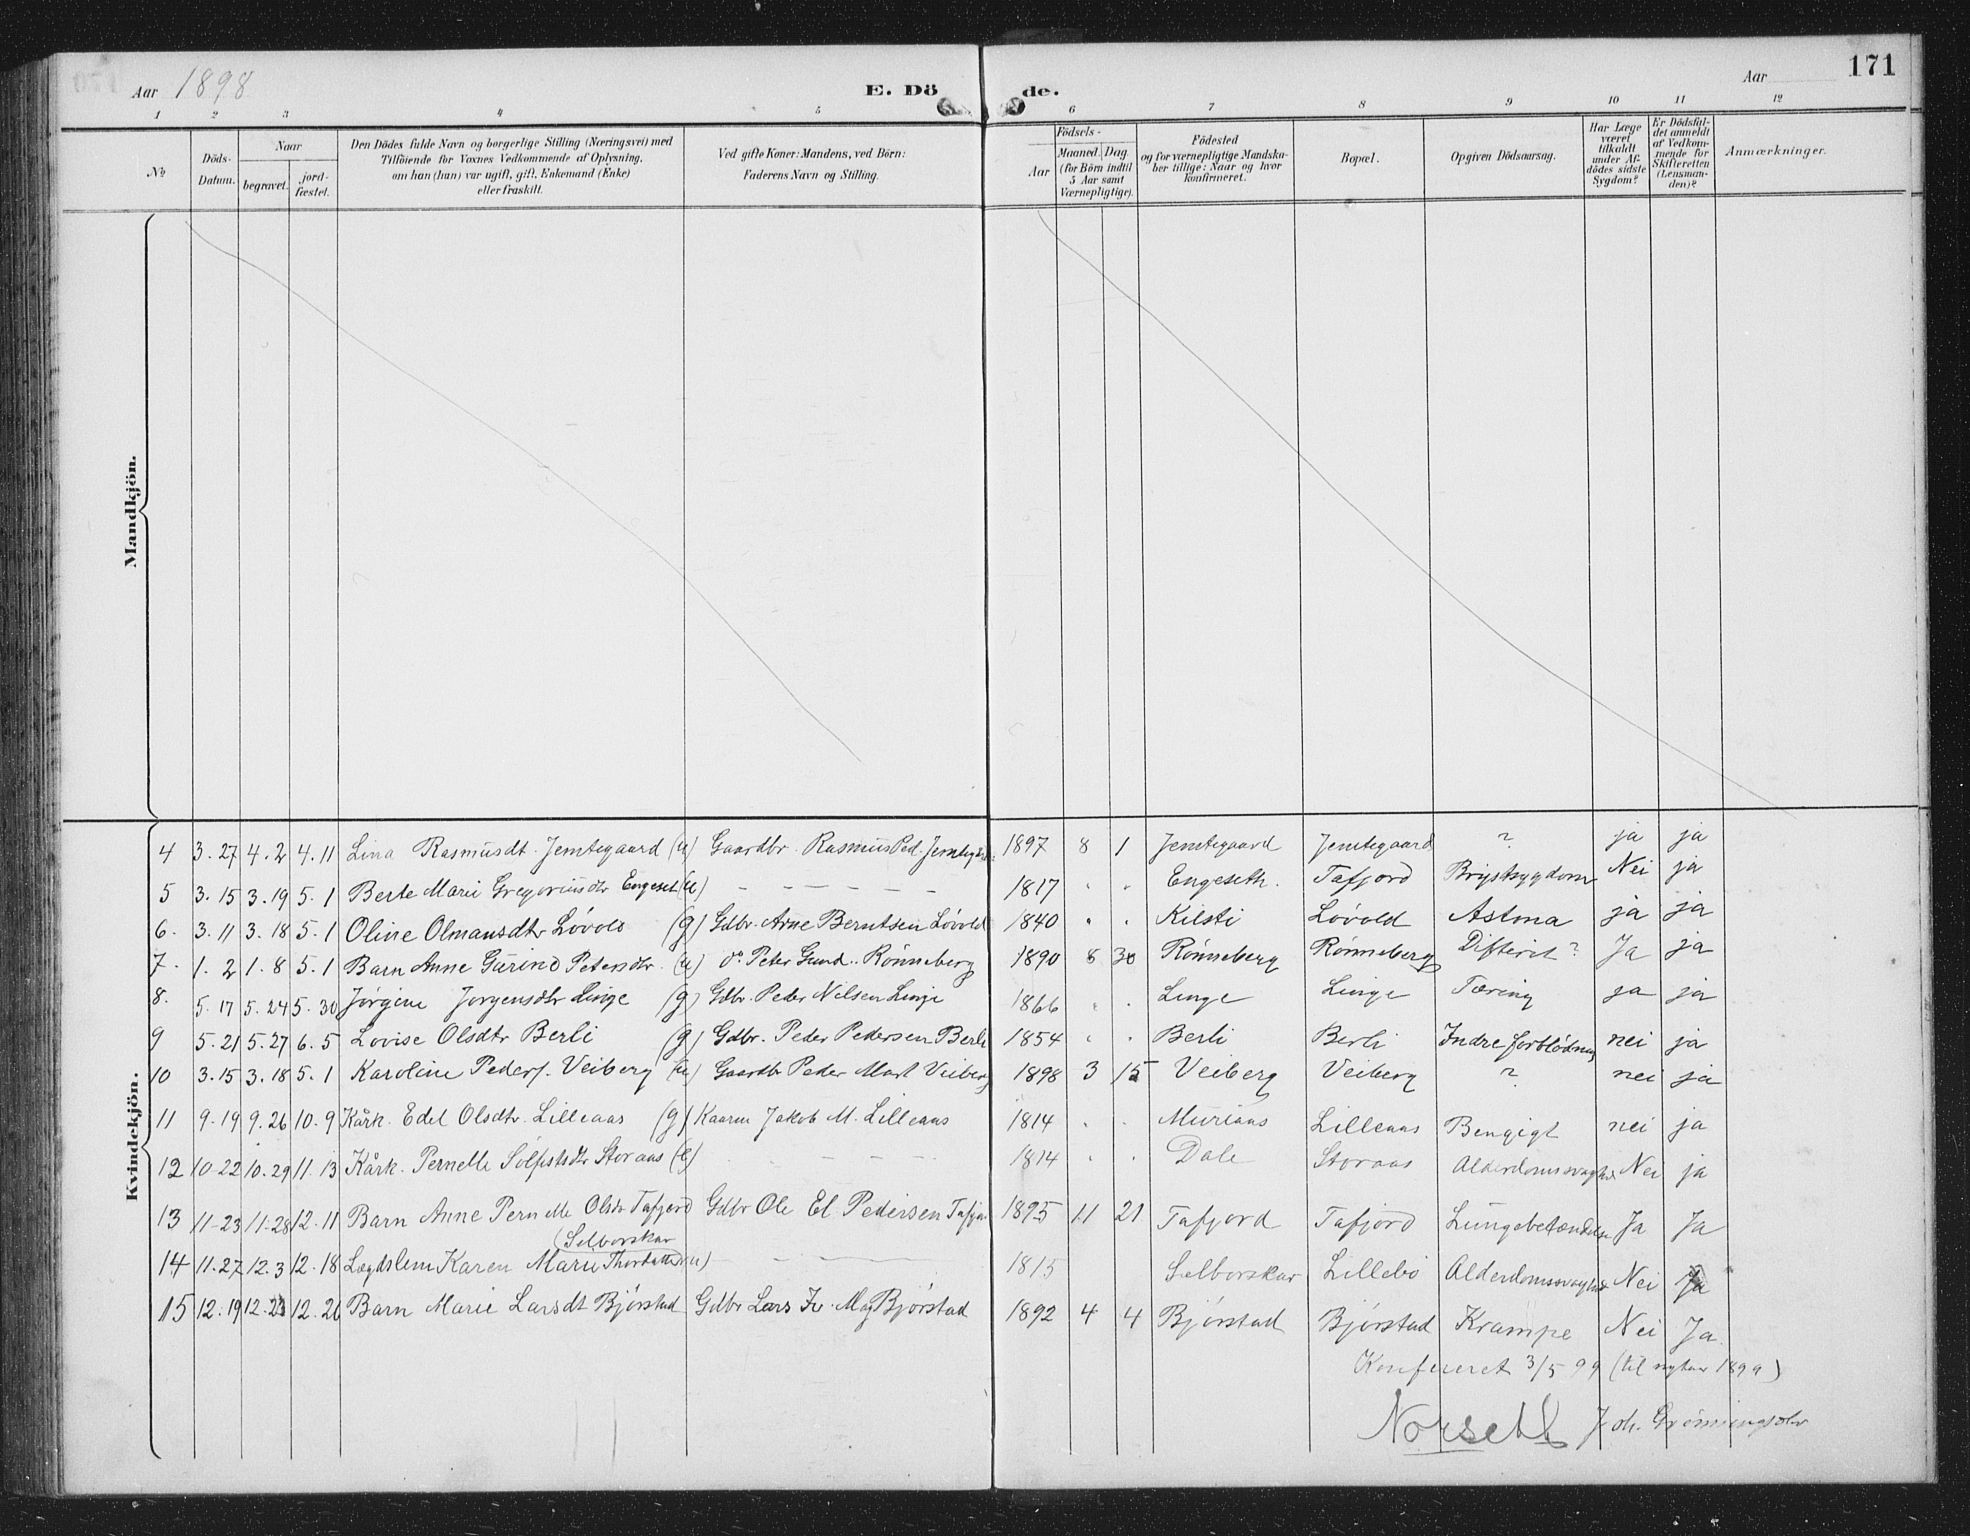 Aar 1898 E. Dö de. Aar 171
1 2 3 4 5 6 7 8 9 10 11 12
№ Döds-Datum. Naar begravet. jord-fæstet. Den Dödes fulde Navn og borgerlige Stilling (Næringsvei) med Tilföiende for Voxnes Vedkommende af Oplysning, om han (hun) var ugift, gift, Enkemand (Enke) eller fraskilt. Ved gifte Koner: Mandens, ved Börn: Faderens Navn og Stilling. Födsels- Aar Maaned. Dag (for Börn indtil 5 Aar samt Værnepligtige). Födested og for værnepligtige Mandska-ber tillige: Naar og hvor konfirmeret. Bopæl. Opgiven Dödsaarsag. Har Læge været tilkaldt under Af-dödes sidste Sygdom? Er Dödsfal-det anmeldt af Vedkom-mende for Skifteretten (Lensman-den)? Anmærkninger.
Mandkjön.
Kvindekjön.
4 3.27 4.2 4.11 Lina Rasmusdt. Jemtegaard (u) Gaardbr. Rasmus Ped. 1897 8 1 Jemtegaard Jemtegaard ? ja ja
5 3.15 3.19 5.1 Berte Marie Gregoriusdtr Engeset (u) - - - - - - 1817 " " Engeseth. Tafjord Brystsygdom Nei ja
6. 3.11 3.18 5.1 Oline Olmansdtr Lövold (g) Gdbr. Arne Berntsen Lövold 1840 " . Kilsti Lövold Astma ja ja
7. 1.2 1.8 5.1 Barn Anne Gurine Petersdtr. (u) Do Peter Gund.. Rönneberg 1890 8 30 Rönneberg Rönneberg Difterit? Ja ja
8. 5.17 5.24 5.30 Jörgine Jorgensdtr Linge (g) Gdbr. Peder Nilsen Linge 1866 " . Linge Linge Tæring ja ja
9 5.21 5.27 6.5 Lovise Olsdtr Berli (g) Gdbr. Peder Pedersen Berli 1854 " . Berli Berli Indre forblödning nei ja
10 3.15 3.18 5.1 Karoline Peders. Veiberg (u) Gaardb Peder Mart Veiberg 1898 3 15 Veiberg Veiberg ? nei ja
11 9.19 9.26 10.9 Kårk. Edel Olsdtr. Lilleaas (g) Kaarm Jakob M. Lilleaas 1814 . . Muriaas Lilleaas nei ja
12 10.22 10.29 11.13 Kårk. Pernelle Storaas (e) - - - - 1814 . . Dale Storaas Alderdomssvaghed Nei ja
13 11-23 11-28 12.11 Barn Anne Pernelle Olsdtr Tafjord Gdbr Ole El. Pedersen Tafjord 1895 11 21 Tafjord Tafjord Lungebetændelse Ja Ja
(Selborskar
14 11.27 12.3 12.18 Lægdslem Karen Marie (u) - 1815 Selborskar Lillebö Alderdomssvaghed Nei Ja
15 12.19 12.23 12.26 Barn Marie Larsdt Bjørstad Gdbr Lars Fr. Mag Bjørstad 1892 4 4 Bjørstad Bjørstad Krampe Nei Ja.
Konfereret 3/5 99 (til nytaar 1899)
Norseth